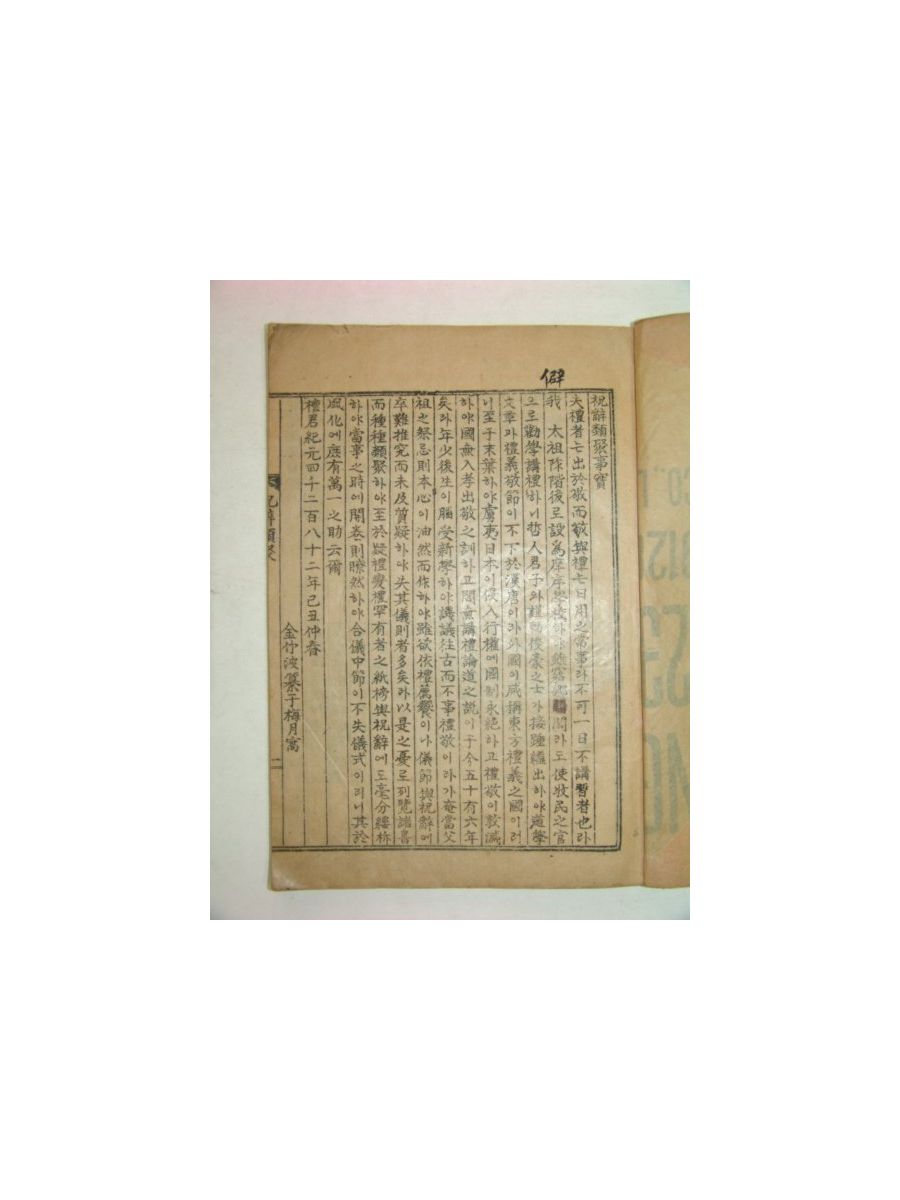 僻
祝辭類聚事實
夫禮者는出於敬而敬與禮는日用之常事라不可一日不講暫者也라
我 太祖陞階後로設爲庠序學校하야雖窮鄕 閭라도使牧民之官
으로勸學講禮하니哲人君子와權動俊豪之士가接踵繼出하야道學
文章과禮義敬節이不下於漢唐이라外國이咸稱東方禮義之國이러
니至于末葉하야虜夷日本이侵入行權에國制永絶하고禮敬이敦滅
하야國無入孝出敬之訓하고閭無講禮論道之説이于今五十有六年
矣라年少後生이腦受新學하야譏議往古而不事禮敬이라가奄當父
祖之祭忌則本心이油然而作하야雖欲依禮薦饗이나儀節與祝辭에
卒難推究而未及質疑하야失其儀則者多矣라以是之憂로列覽諸書
而種種類聚하야至於疑禮變禮罕有者之紙榜與祝辭에도毫分縷柝
하야當事之時에開卷則瞭然하야合儀中節이不失儀式이러니其於
風化에庶有萬一之助云爾
檀君紀元四千二百八十二年己丑仲春
金竹波纂于梅月窩
祝辭類聚
二